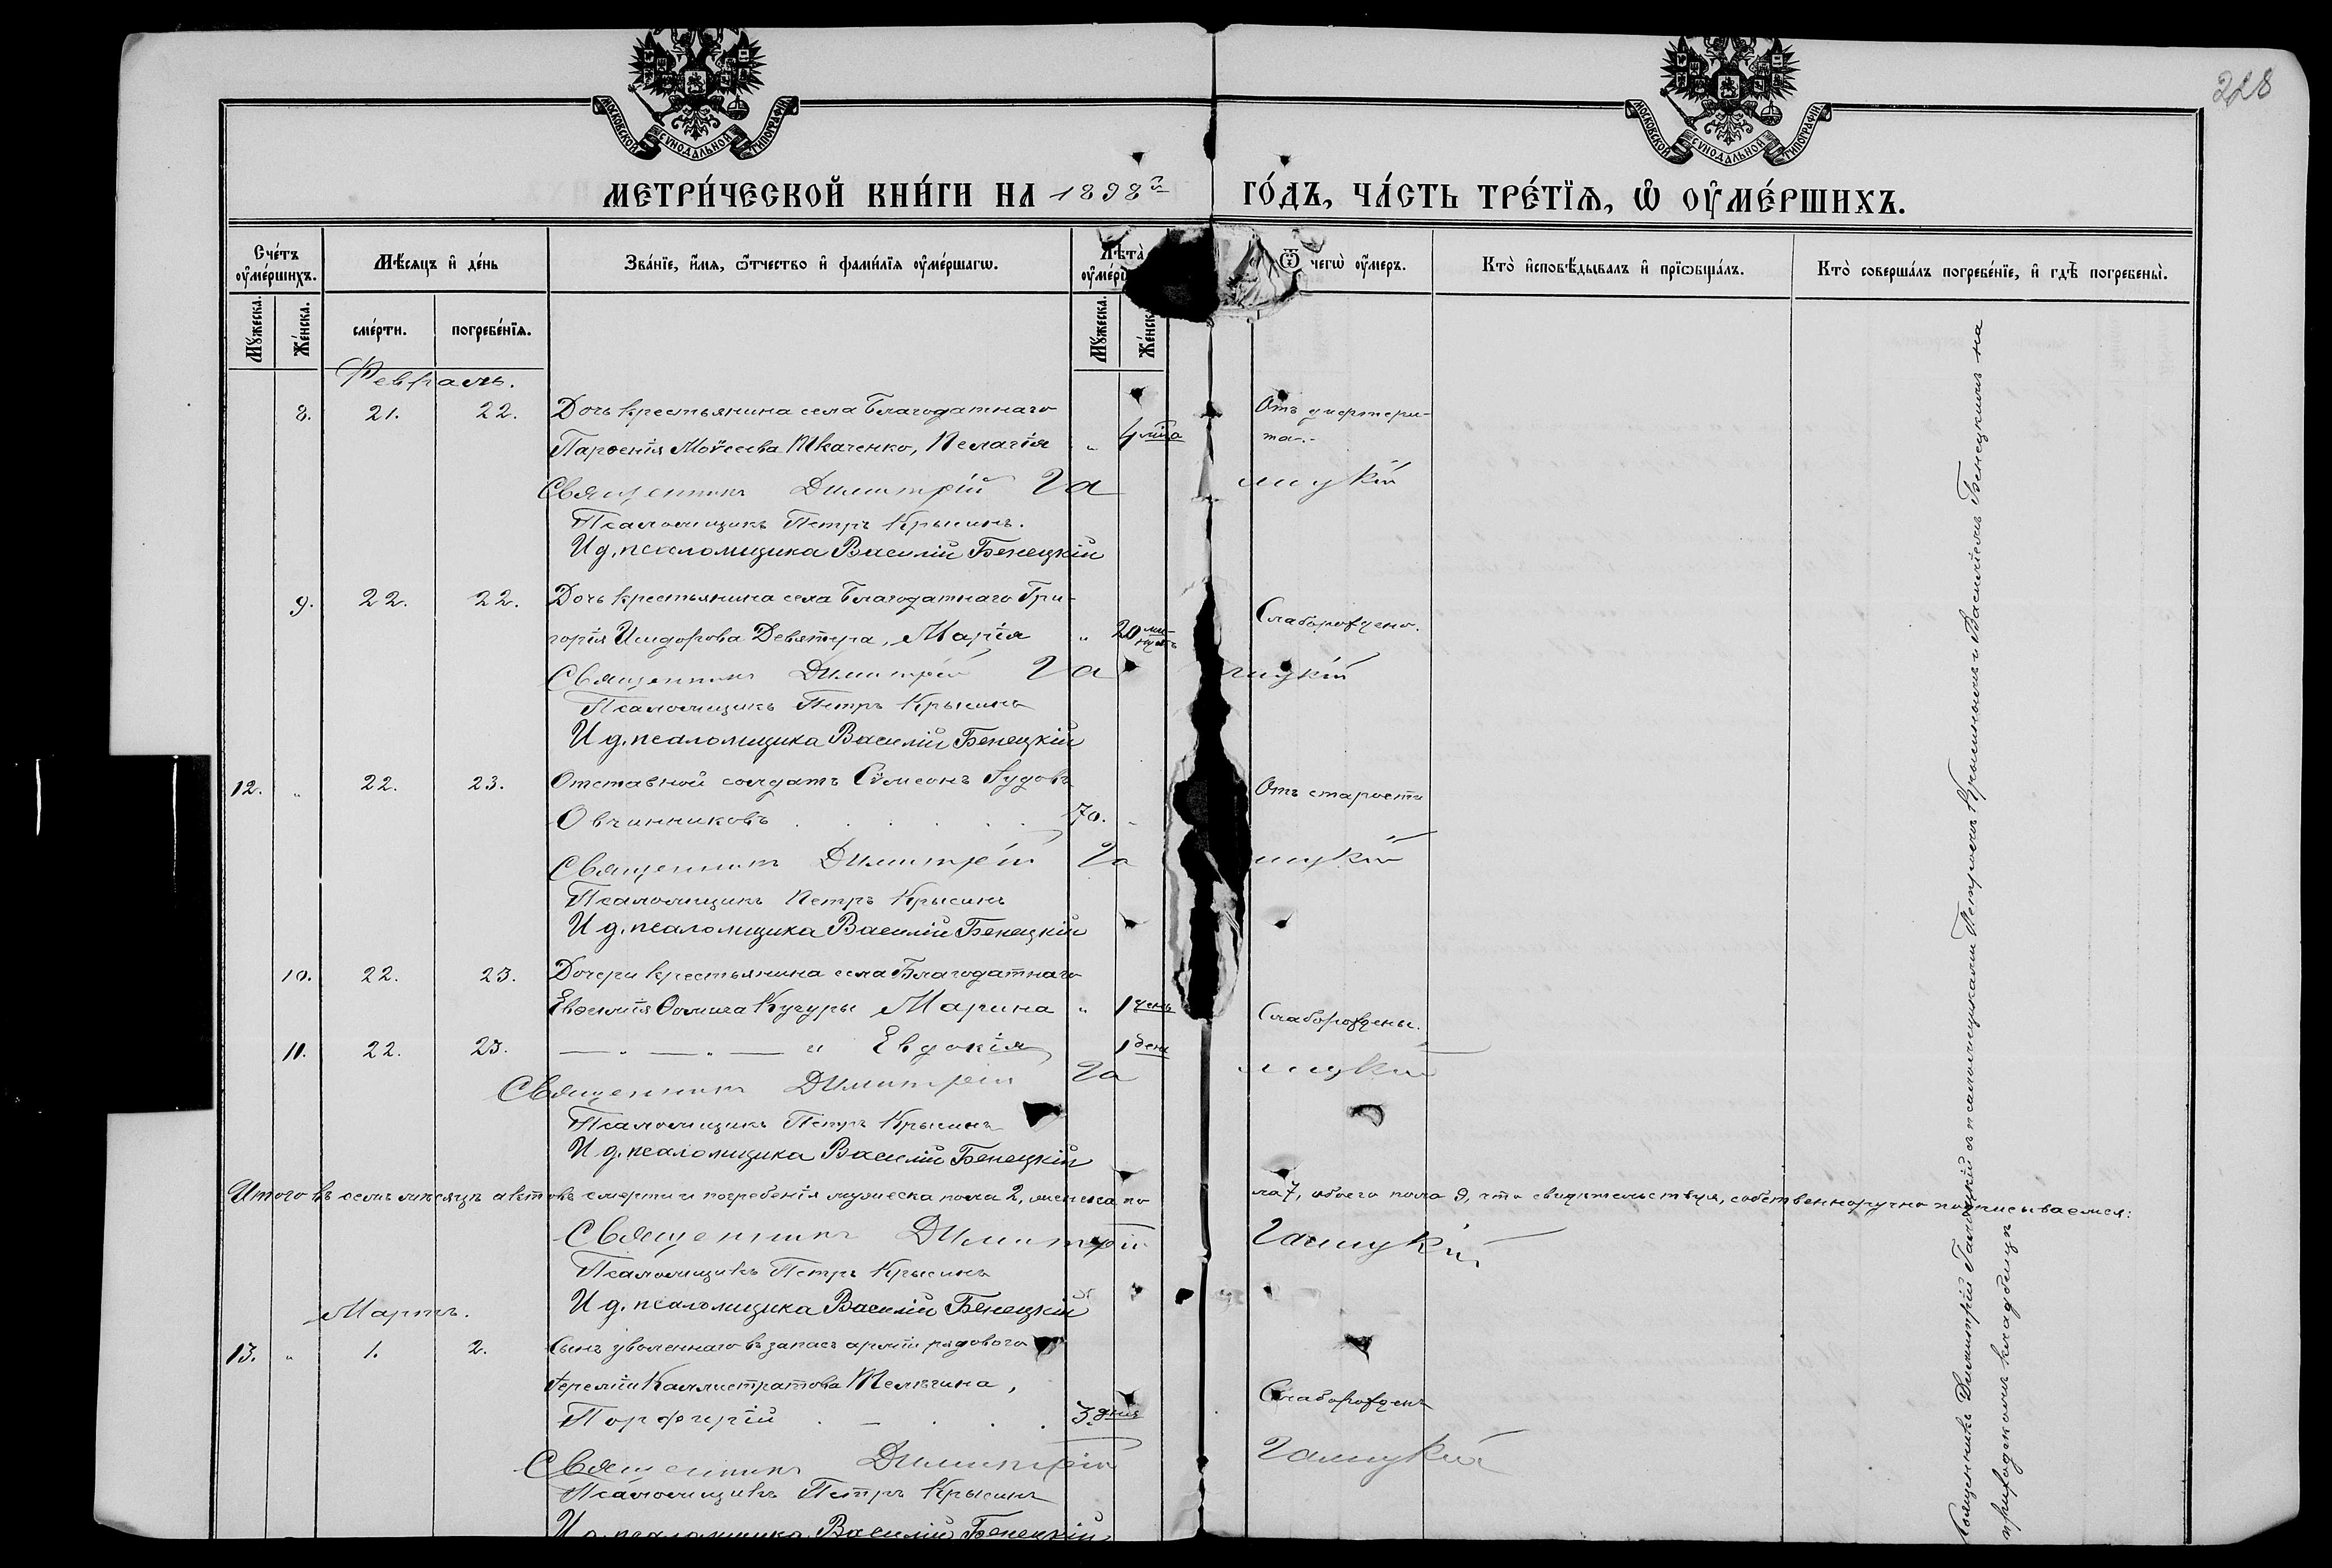 228
МОСКОВСКОЙ СѴНОДАЛЬНОЙ ТИПОГРАФІИ
МОСКОВСКОЙ СѴНОДАЛЬНОЙ ТИПОГРАФІИ
МЕТРИ́ЧЕСКОЙ КНИ́ГИ НА 1898й ГО́ДЪ, ЧА́СТЬ ТРЕ́ТЇѦ, Ѡ҆ ОУ҆МЕ́РШИХЪ.
Сче́тъ оу҆ме́ршихъ.
Мѣ́сяцъ и҆ де́нь
Зва́нїе, и҆́мя, ѻ҆́тчество и҆ фами́лїя оу҆ме́ршагѡ.
Лѣ́та оу҆ме́р
Ѿ чегѡ̀ оу҆́меръ.
Кто̀ и҆сповѣ́дывалъ и҆ прїѡбща́лъ.
Кто̀ соверша́лъ погребе́нїе, и҆ гдѣ̀ погребены̀.
Мꙋ́жеска.
Же́нска.
сме́рти.
погребе́нїя.
Мꙋ́жеска.
Же́нск
Февраль.
8. 21. 22. Дочь крестьянина села Благодатнаго Отъ дифтери-
Парѳенія Моѵсеева Ткаченко, Пелагія „ 4 мца та.
Священникъ Димитрій Га лицкій
Псаломщикъ Петръ Крысинъ.
И д. псаломщика Василій Бенецкій
9. 22. 22. Дочь крестьянина села Благодатнаго Гри-
горія Исидорова Девятура, Марія „ 20 минутъ Слаборождена.
Священникъ Димитрій Га лицкій
Псаломщикъ Петръ Крысинъ
И д. псаломщика Василій Бенецкій
12. „ 22. 23. Отставной солдатъ Сѵмеонъ Іудовъ Отъ старости
Овчинниковъ 70. -
Священникъ Димитрій Га лицкій
Псаломщикъ Петръ Крысинъ
И д. псаломщика Василій Бенецкій
10. 22. 23. Дочери крестьянина села Благодатнаго
Евѳимія Ѳомича Кучуры Марина „ 1 день Слаборождены.
11. 22. 23. — „ — „ — и Евдокія 1 день
Священникъ Димитрій Га лицкій
Псаломщикъ Петръ Крысинъ
И д. псаломщика Василій Бенецкій
Итого въ семъ мѣсяцѣ актовъ смерти и погребенія мужеска пола 2, женска по ла 7, обоего пола 9, что свидѣтельствуя, собственноручно подписываемся:
Священникъ Димитрій Галицкій
Псаломщикъ Петръ Крысинъ
И д. псаломщика Василій Бенецкій
Мартъ.
13. „ 1. 2. Сынъ уволеннаго въ запасъ арміи рядового
Іереміи Каллистратова Телегина,
Порфирій 3. дня Слаборожденъ
Священникъ Димитрій Галицкій
Псаломщикъ Петръ Крысинъ
И д. псаломщика Василій Бенецкій
Священникъ Димитрій Галицкій съ псаломщиками Петромъ Крысинымъ и Василіемъ Бенецкимъ на
приходскомъ кладбищѣ